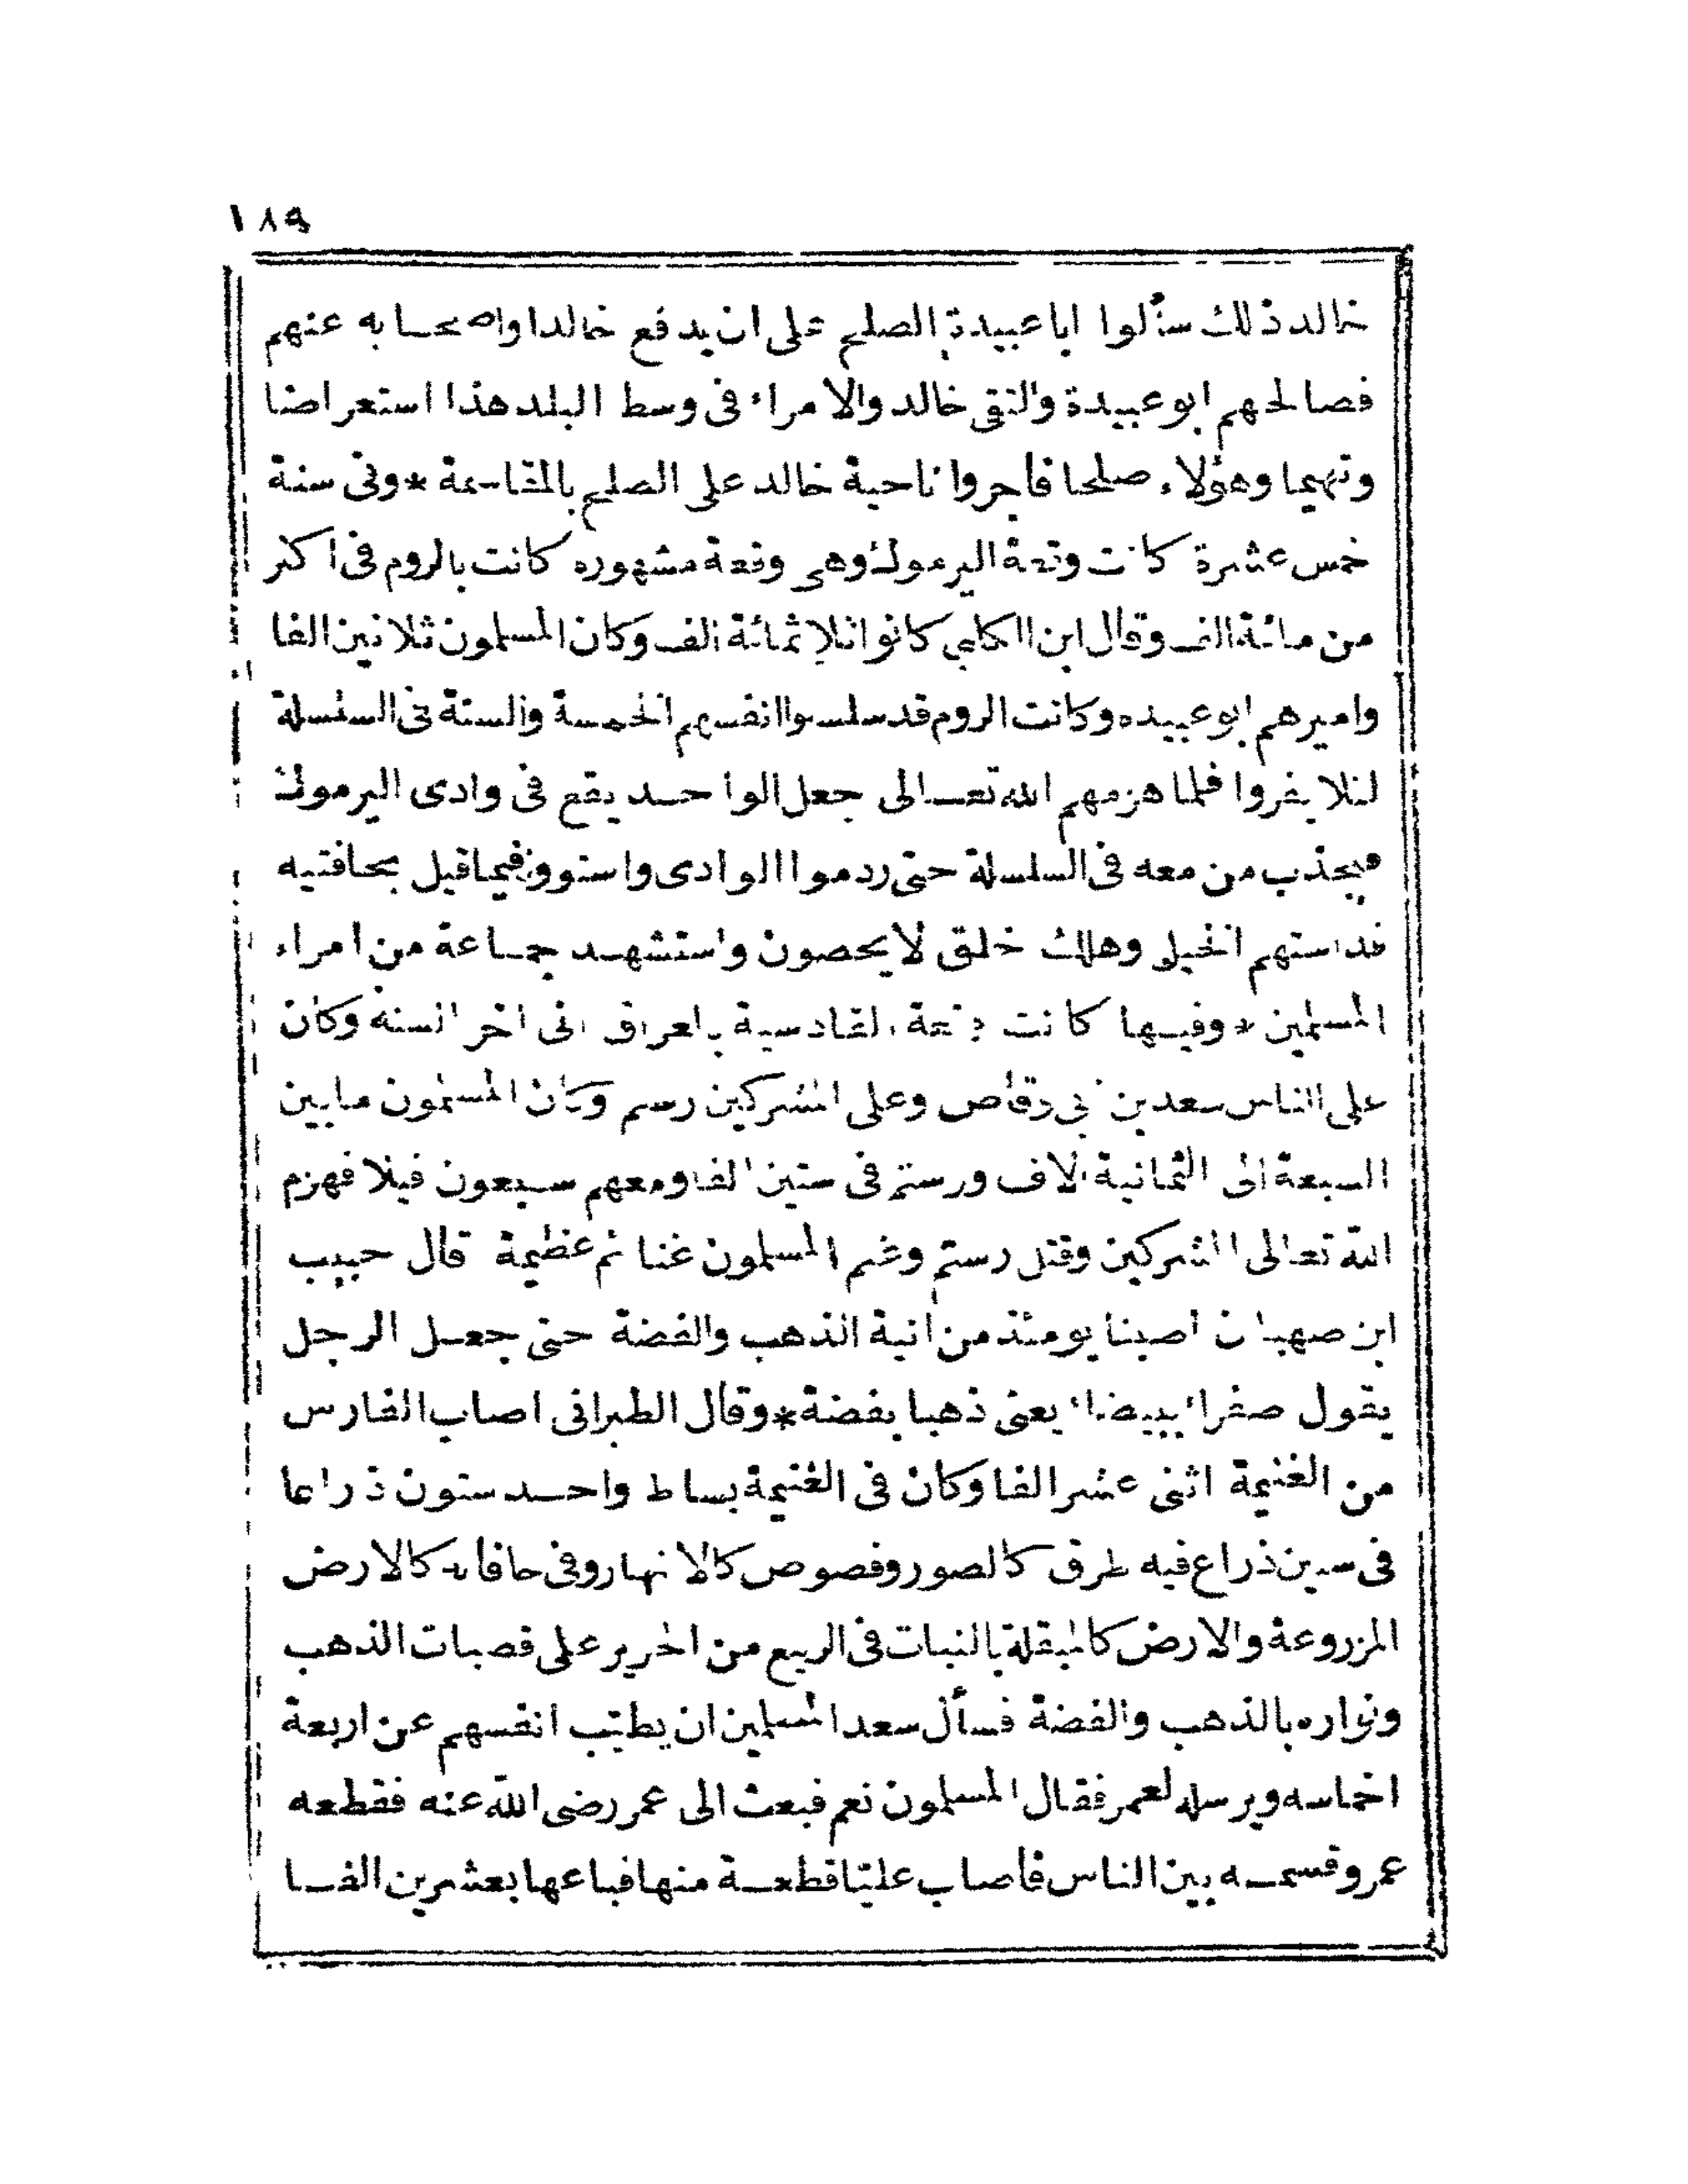 ١٨٩
خالد ذلك سألوا ابا عبيدة الصلح على ان يدفع خالدا واصحابه عنهم
فصالحهم ابو عبيدة والتقى خالد والامراء فى وسط البلد هذا استعراضا
ونهبا وهؤلاء صلحا فاجروا ناحية خالد على الصلح بالمقاسمة * وفى سنة
خمس عشرة كانت وقعة اليرموك وهى وقعة مشهوره كانت بالروم فى اكثر
من مائة الف وقال ابن الكلبى كانوا ثلاثمائة الف وكان المسلمون ثلاثين الفا
واميرهم ابو عبيده وكانت الروم قد سلسلوا انفسهم الخمسة والستة فى السلسلة
لئلا يفروا فلما هزمهم الله تعالى جعل الواحد يقع فى وادى اليرموك
فيجذب من معه فى السلسلة حتى ردموا الوادى واستووا فيما قيل بحافتيه
فداستهم الخيل وهلك خلق لا يحصون واستشهد جماعة من امراء
المسلمين * وفيها كانت وقعة القادسية بالعراق فى اخر السنه وكان
على الناس سعد بن ابى وقاص وعلى المشركين رستم وكان المسلمون ما بين
السبعة الى الثمانية الاف ورستم فى ستين الفا ومعهم سبعون فيلا فهزم
الله تعالى المشركين وقتل رستم وغنم المسلمون غنائم عظيمة قال حبيب
ابن صهبان اصبنا يومئذ من انية الذهب والفضة حتى جعل الرجل
يقول صفراء ببيضاء يعنى ذهبا بفضة * وقال الطبرانى اصاب الفارس
من الغنيمة اثنى عشر الفا وكان فى الغنيمة بساط واحد ستون ذراعا
فى ستين ذراع فيه طرق كالصور وفصوص كالانهار وفى حافاته كالارض
المزروعة والارض كالمبقلة بالنبات فى الربيع من الحرير على قصبات الذهب
ونواره بالذهب والفضة فسأل سعد المسلمين ان يطيّب انفسهم عن اربعة
اخماسه ويرسله لعمر فقال المسلمون نعم فبعث الى عمر رضى الله عنه فقطعه
عمر وقسمه بين الناس فأصاب عليّا قطعة منها فباعها بعشرين الفا